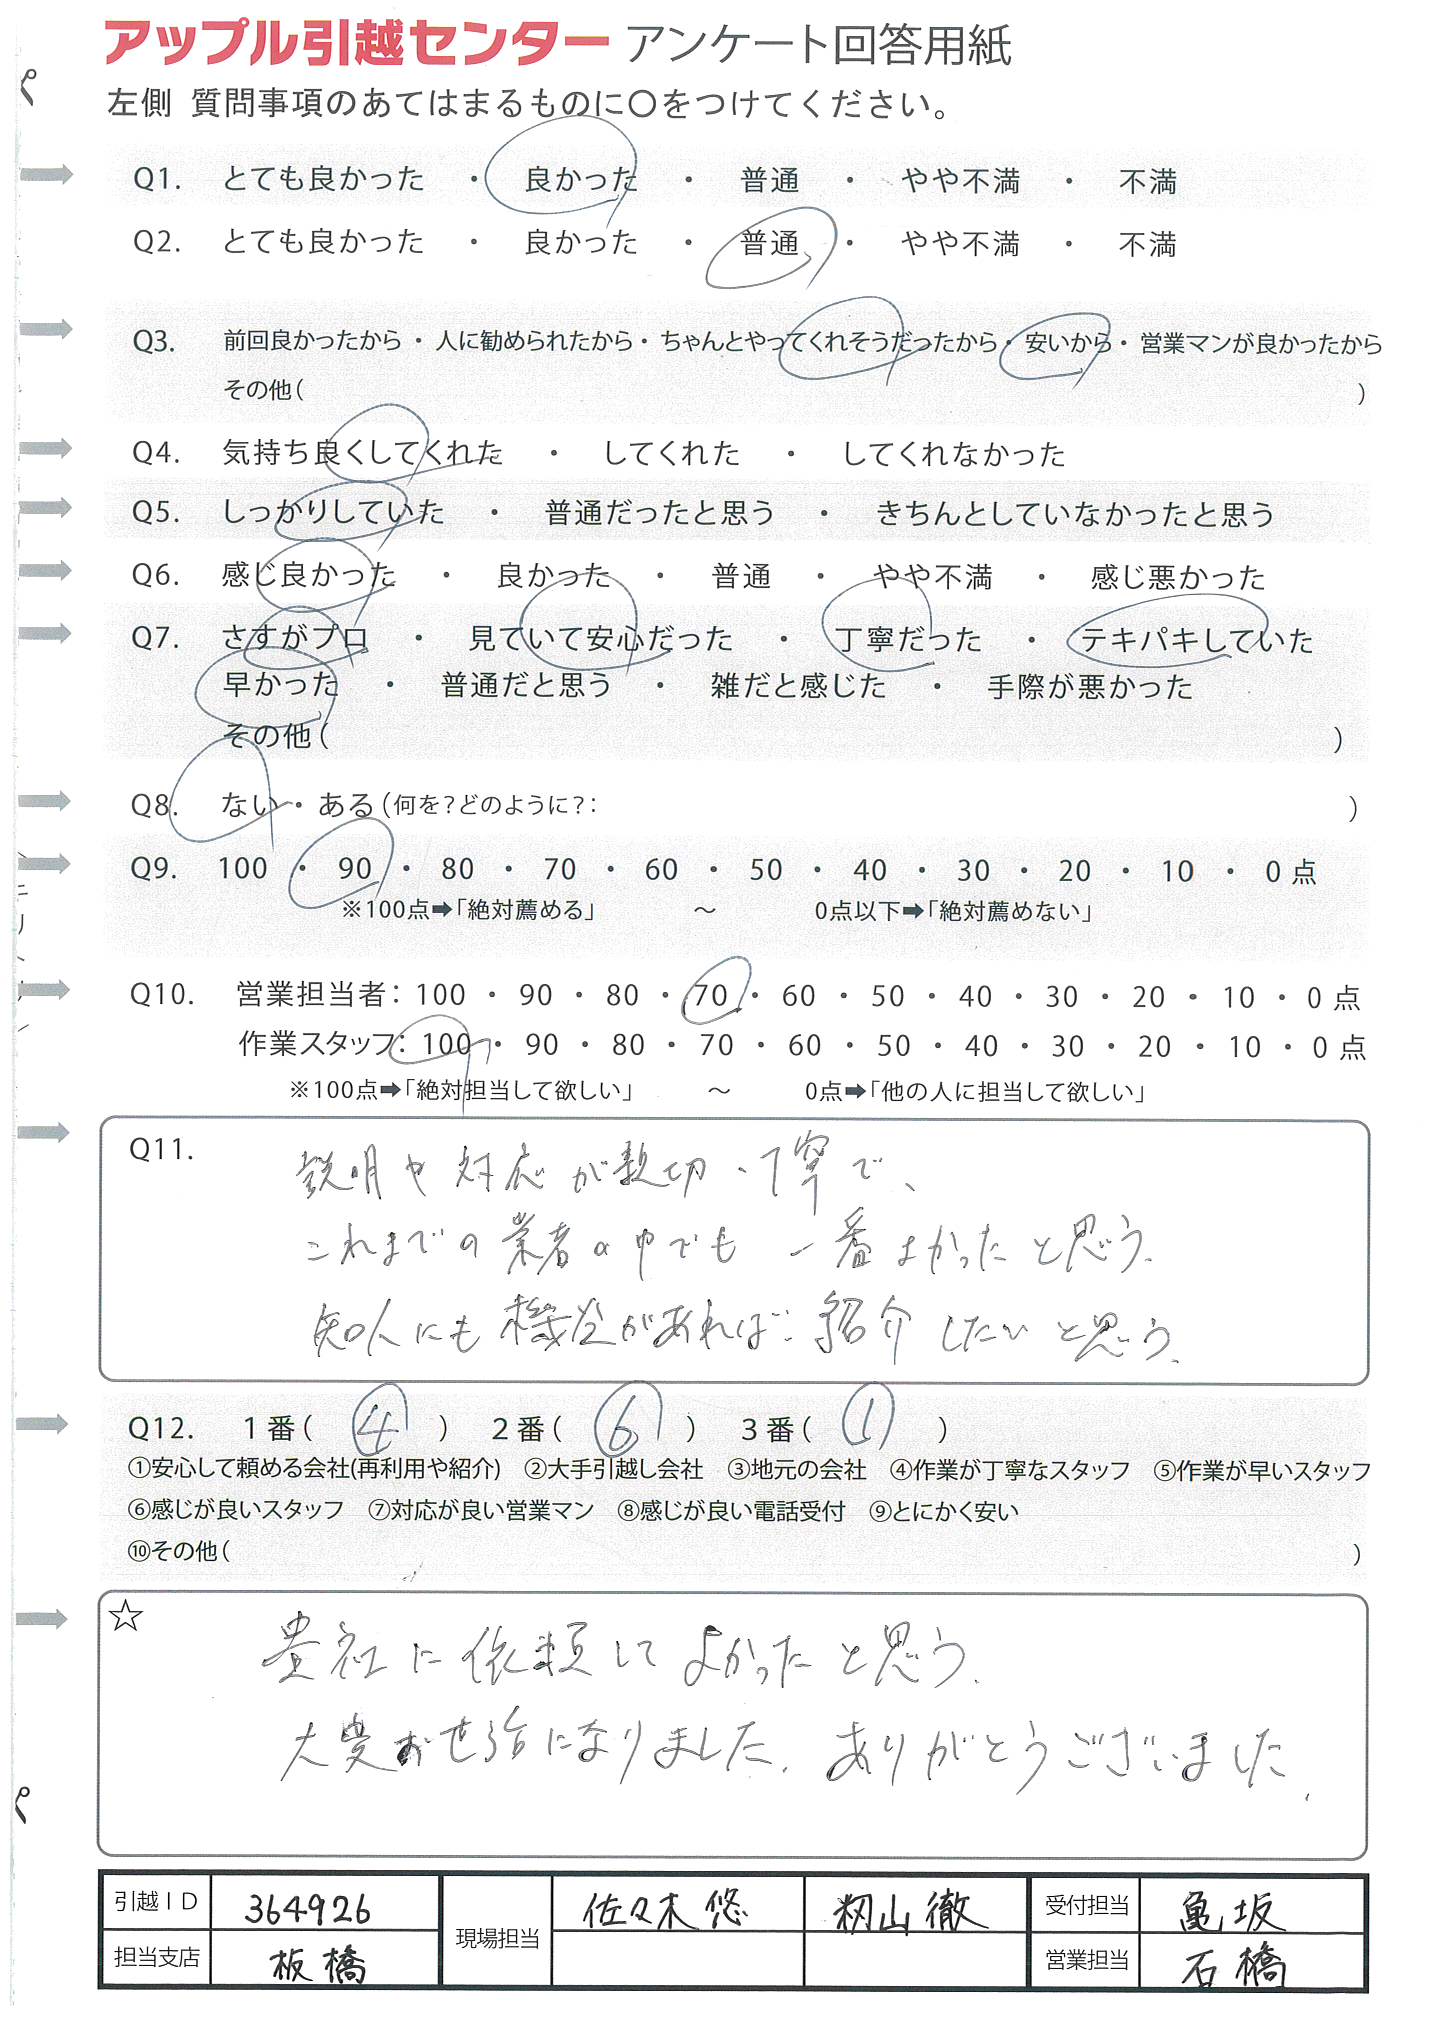 アップル引越センター アンケート回答用紙
左側 質問事項のあてはまるものに〇をつけてください。
Q1. とても良かった ・ 良かった ・ 普通 ・ やや不満 ・ 不満
Q2. とても良かった ・ 良かった ・ 普通 ・ やや不満 ・ 不満
Q3. 前回良かったから・人に勧められたから・ちゃんとやってくれそうだったから・安いから・営業マンが良かったから
その他( )
Q4. 気持ち良くしてくれた ・ してくれた ・ してくれなかった
Q5. しっかりしていた ・ 普通だったと思う ・ きちんとしていなかったと思う
Q6. 感じ良かった ・ 良かった ・ 普通 ・ やや不満 ・ 感じ悪かった
Q7. さすがプロ ・ 見ていて安心だった ・ 丁寧だった ・ テキパキしていた
早かった ・ 普通だと思う ・ 雑だと感じた ・ 手際が悪かった
その他( )
Q8. ない・ある(何を?どのように?: )
Q9. 100 ・ 90 ・ 80 ・ 70 ・ 60 ・ 50 ・ 40 ・ 30 ・ 20 ・ 10 ・ 0 点
※100点➡「絶対薦める」 ～ 0点以下➡「絶対薦めない」
Q10. 営業担当者: 100 ・ 90 ・ 80 ・ 70 ・ 60 ・ 50 ・ 40 ・ 30 ・ 20 ・ 10 ・ 0 点
作業スタッフ: 100 ・ 90 ・ 80 ・ 70 ・ 60 ・ 50 ・ 40 ・ 30 ・ 20 ・ 10 ・ 0 点
※100点➡「絶対担当して欲しい」 ～ 0点➡「他の人に担当して欲しい」
Q11. 説明や対応が親切・丁寧で、
これまでの業者の中でも一番よかったと思う。
知人にも機会があれば紹介したいと思う。
Q12. 1番( ④ ) 2番( ⑥ ) 3番( ① )
①安心して頼める会社(再利用や紹介) ②大手引越し会社 ③地元の会社 ④作業が丁寧なスタッフ ⑤作業が早いスタッフ
⑥感じが良いスタッフ ⑦対応が良い営業マン ⑧感じが良い電話受付 ⑨とにかく安い
⑩その他( )
☆ 貴社に依頼してよかったと思う。
大変お世話になりました。ありがとうございました。
引越ID 364926 現場担当 佐々木悠 籾山徹 受付担当 亀坂
担当支店 板橋 営業担当 石橋